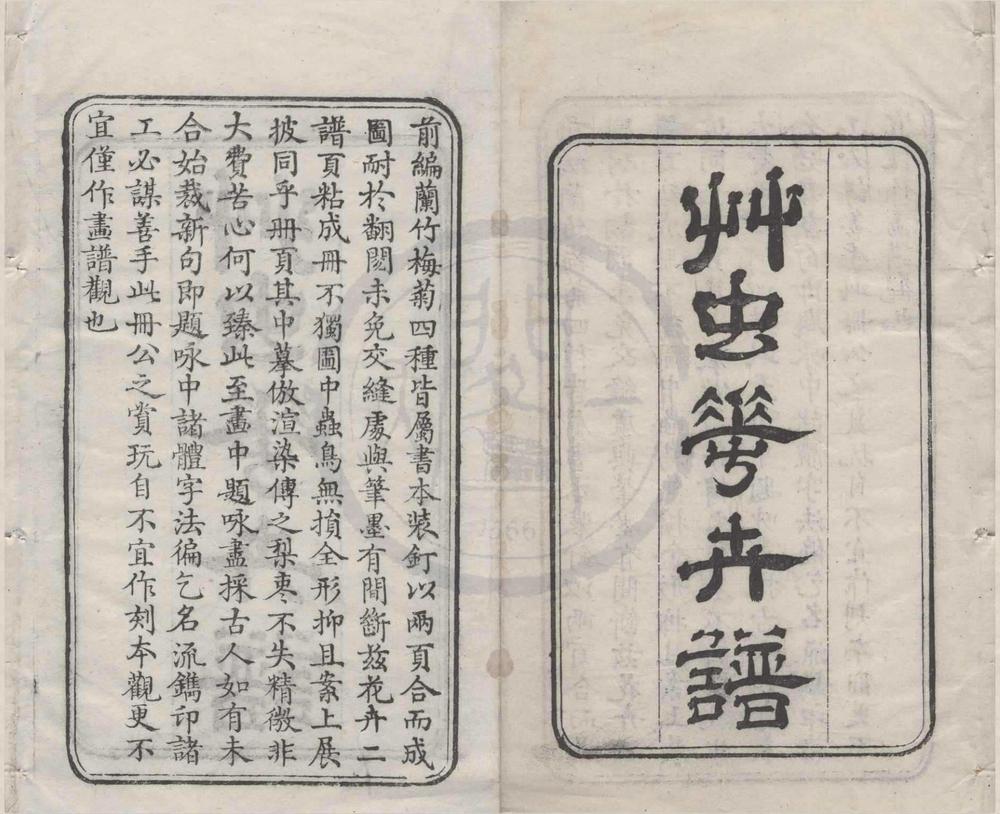 艸虫華卉譜
前編蘭竹梅菊四種皆屬書本裝釘以兩頁合而成
圖耐於翻閱未免交縫處與筆墨有間斷兹花卉二
譜頁粘成冊不獨圖中蟲鳥無損全形抑且案上展
披同乎冊頁其中摹倣渲染傳之梨枣不失精微非
大費苦心何以臻此至畫中題咏盡採古人如有未
合始裁新句即題咏中諸體字法徧乞名流鐫印諸
工必謀善手此冊公之賞玩自不宜作刻本觀更不
宜僅作畫譜觀也